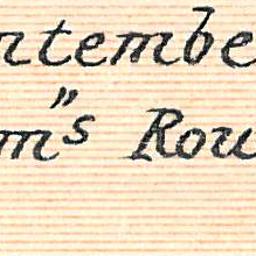 ntembe
m"s Rou